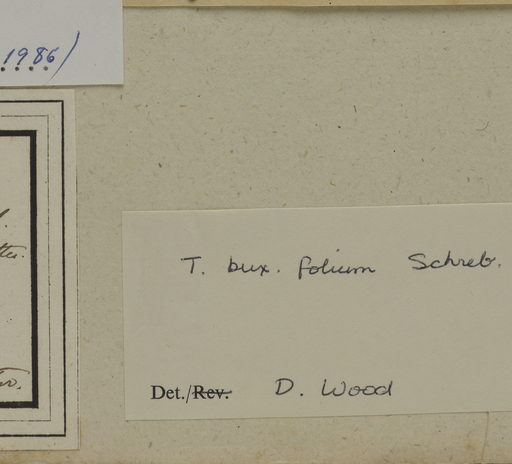 1986)
T. bux. folium Schreb.
Det./Rev. D. Wood